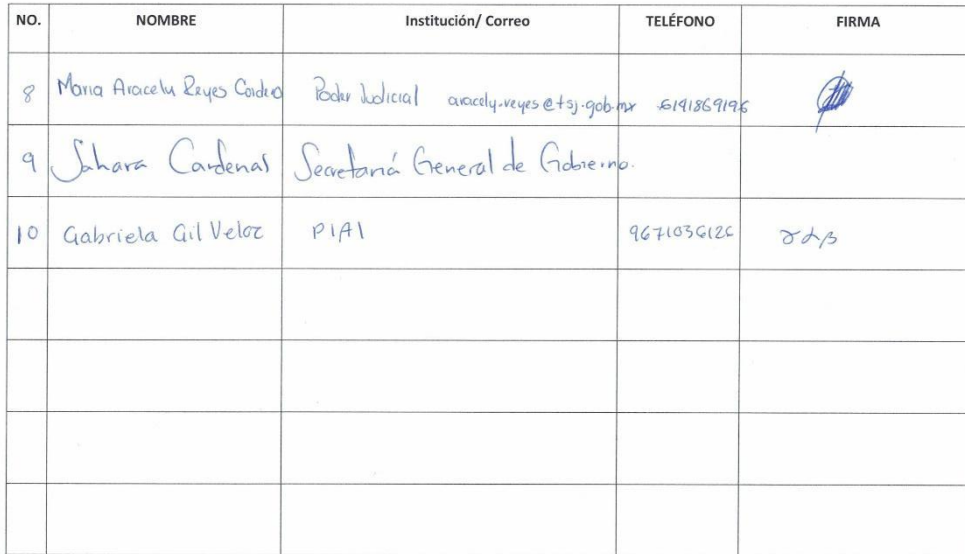 NO. NOMBRE Institución/ Correo TELÉFONO FIRMA
8 Maria Aracely Reyes Cordero Poder Judicial aracely.reyes@tsj.gob.mx 6141869196
9 Sahara Cardenas Secretaría General de Gobierno.
10 Gabriela Gil Veloz PIAI 9671036126